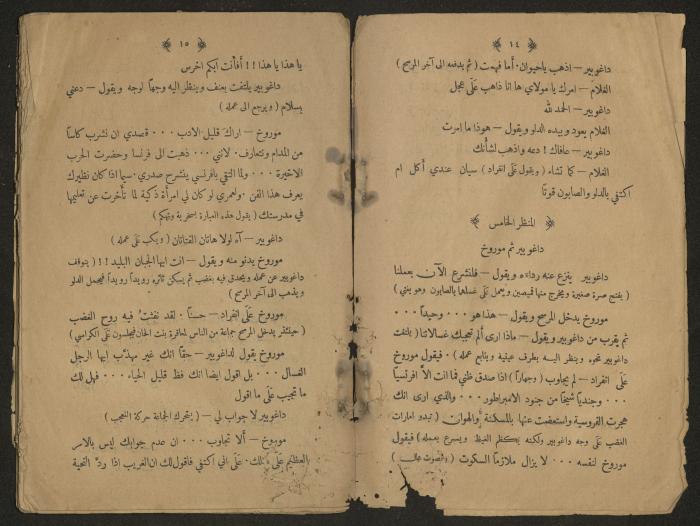 ﴿ ١٤ ﴾
داغوبير — اذهب ياحيوان. أما فهمت ( ثم يدفعه الى آخر المرسح )
الغلام — امرك يا مولاي ها انا ذاهب عَلَى عجل
داغوبير — الحمد لله
الغلام يعود وبيده الدلو ويقول — هوذا ما امرت
داغوبير — عافاك ! دعه واذهب لشأنك
الغلام — كما تشاء ( ويقول عَلَى انفراد ) سيان عندي أكل ام
اكتفي بالدلو والصابون قوتًا
﴿ المنظر الخامس ﴾
داغوبير ثم موروخ
داغوبير ينزع عنه رداءه ويقول — فلنشرع الآن بعملنا
( يفتح صرة صغيرة ويخرج منها قميصين ويعمل عَلَى غسلها بالصابون وهو يغني )
موروخ يدخل المرسح ويقول — هذا هو ٠٠٠ وحيداً ٠٠٠
ثم يقرب من داغوبير ويقول — ماذا ارى ألم تعجبك غسالاتنا ( يلتفت
داغوبير نحوه وينظر اليه بطرف عينيه ويتابع عمله ) ٠ فيقول موروخ
عَلَى انفراد — لم يجاوب ( وجهاراً ) اذا صدق ظني فما انت الا افرنسيًا
٠٠٠ وجنديًا شيخًا من جنود الامبراطور ٠٠٠ والذي ارى انك
هجرت الفروسية واستعضت عنها بالمسكنة والهوان ( تبدو امارات
الغضب عَلَى وجه داغوبير ولكنه يكظم الغيظ ويسرع بعمله ) فيقول
موروخ لنفسه ٠٠٠ لا يزال ملازمًا السكوت (
﴿ ١٥ ﴾
يا هذا يا هذا !! أفأنت ابكم اخرس
داغوبير يلتفت بعنف وينظر اليه وجهًا لوجه ويقول — دعني
بسلام ( ويرجع الى عمله )
موروخ — اراك قليل الادب ٠٠٠ قصدي ان نشرب كاسًا
من المدام ونتعارف. لانني ٠٠٠ ذهبت الى فرنسا وحضرت الحرب
الاخيرة ٠٠٠ ولما التقي بافرنسي ينشرح صدري. سيما اذا كان نظيرك
يعرف هذا الفن. ولعمري لو كان لي امرأة ذكية لما تأخرت عن تعليمها
في مدرستك ( يقول هذه العبارة بسخرية وتهكم )
داغوبير — آه لولا هاتان الفتاتان ( ويكب عَلَى عمله )
موروخ يدنو منه ويقول — انت ايها الجبان البليد !! ( يتوقف
داغوبير عن عمله ويحدق فيه بغضب ثم يسكن ثائره رويداً رويداً فيحمل الدلو
ويذهب الى آخر المرسح )
موروخ عَلَى انفراد — حسنًا. لقد نفثتُ فيه روح الغضب
( حينئذٍ يدخل المرسح جماعة من الناس لمعاقرة بنت الحان فيجلسون عَلَى الكراسي )
موروخ يقول لداغوبير — حقًا انك غير مهذب ايها الرجل
الغسال ٠٠٠ بل اقول ايضا انك فظ قليل الحياء ٠٠٠ فهل لك
ما تجيب عَلَى ما اقول
داغوبير لا جواب لي — ( يتحرك الجماعة حركة التعجب )
موروخ — ألا تجاوب ٠٠٠ ان عدم جوابك ليس بالامر
العظيم عَلَى مثلك. عَلَى اني اكتفي فاقول لك ان الغريب اذا ردَّ التحية